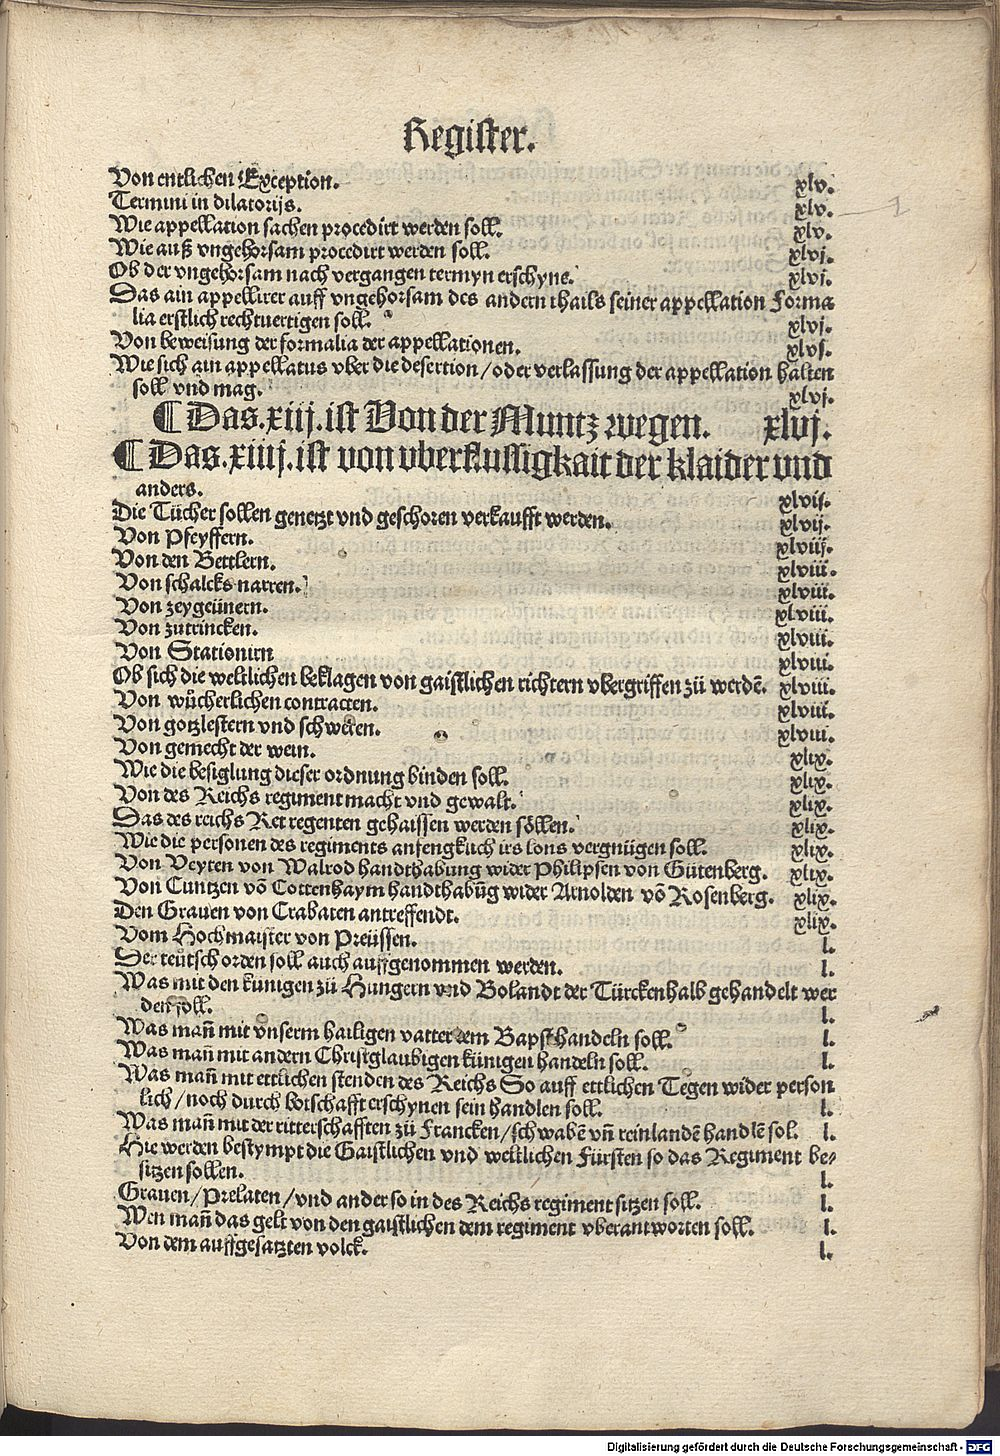 Register.
Von entlichen Exception. xlv.
Termini in dilatorijs. xlv.
Wie appellation sachen procedirt werden soll. xlv.
Wie auß vngehorsam procedirt werden soll. xlvj.
Ob der vngehorsam nach vergangen termyn erschyne. xlvj.
Das ain appellirer auff vngehorsam des andern thails seiner appellation Forma
lia erstlich rechtuertigen soll. xlvj.
Von beweisung der formalia der appellationen. xlvj.
Wie sich ain appellatus vber die desertion/oder verlassung der appellation halten
soll vnd mag. xlvj.
¶ Das.xiij.ist Von der Muntz wegen. xlvj.
¶ Das.xiiij.ist von vberflussigkait der klaider vnd
anders. xlvij.
Die Tücher sollen genetzt vnd geschoren verkaufft werden. xlvij.
Von Pfeyffern. xlviij.
Von den Bettlern. xlviii.
Von schalcks narren. xlviii.
Von zeygeünern. xlviii.
Von zutrincken. xlviii.
Von Stationirn xlviii.
Ob sich die weltlichen beklagen von gaistlichen richtern vbergriffen zü werdẽ. xlviii.
Von wůcherlichen contracten. xlviii.
Von gotzlestern vnd schweren. xlviii.
Von gemecht der wein. xlix.
Wie die besiglung dieser ordnung binden soll. xlix.
Von des Reichs regiment macht vnd gewalt. xlix.
Das des reichs Ret regenten gehaissen werden söllen. xlix.
Wie die personen des regiments anfengklich irs lons vergnügen soll. xlix.
Von Veyten von Walrod handthabung wider Philipsen von Gütenberg. xlix.
Von Cuntzen võ Cottenhaym handthabũg wider Arnolden võ Rosenberg. xlix.
Den Grauen von Crabaten antreffendt. xlix.
Vom Hochmaister von Preüssen. l.
Der teůtsch orden soll auch auffgenommen werden. l.
Was mit den künigen zü Hungern vnd Bolandt der Türckenhalb gehandelt wer
den soll. l.
Was mañ mit vnserm hailigen vatter dem Bapst handeln soll. l.
Was mañ mit andern Christglaubigen künigen handeln soll. l.
Was mañ mit ettlichen stenden des Reichs So auff ettlichen Tegen wider person
lich/noch durch botschafft erschynen sein handlen soll. l.
Was mañ mit der ritterschafften zü Francken/schwabẽ vñ reinlandẽ handlẽ sol. l.
Hie werden bestympt die Gaistlichen vnd weltlichen Fürsten so das Regiment be⸗
sitzen sollen. l.
Grauen/Prelaten/vnd ander so in des Reichs regiment sitzen soll. l.
Wen mañ das gelt von den gaistlichen dem regiment vberantworten soll. l.
Von dem auffgesatzten volck. l.
1
Digitalisierung gefördert durch die Deutsche Forschungsgemeinschaft - DFG